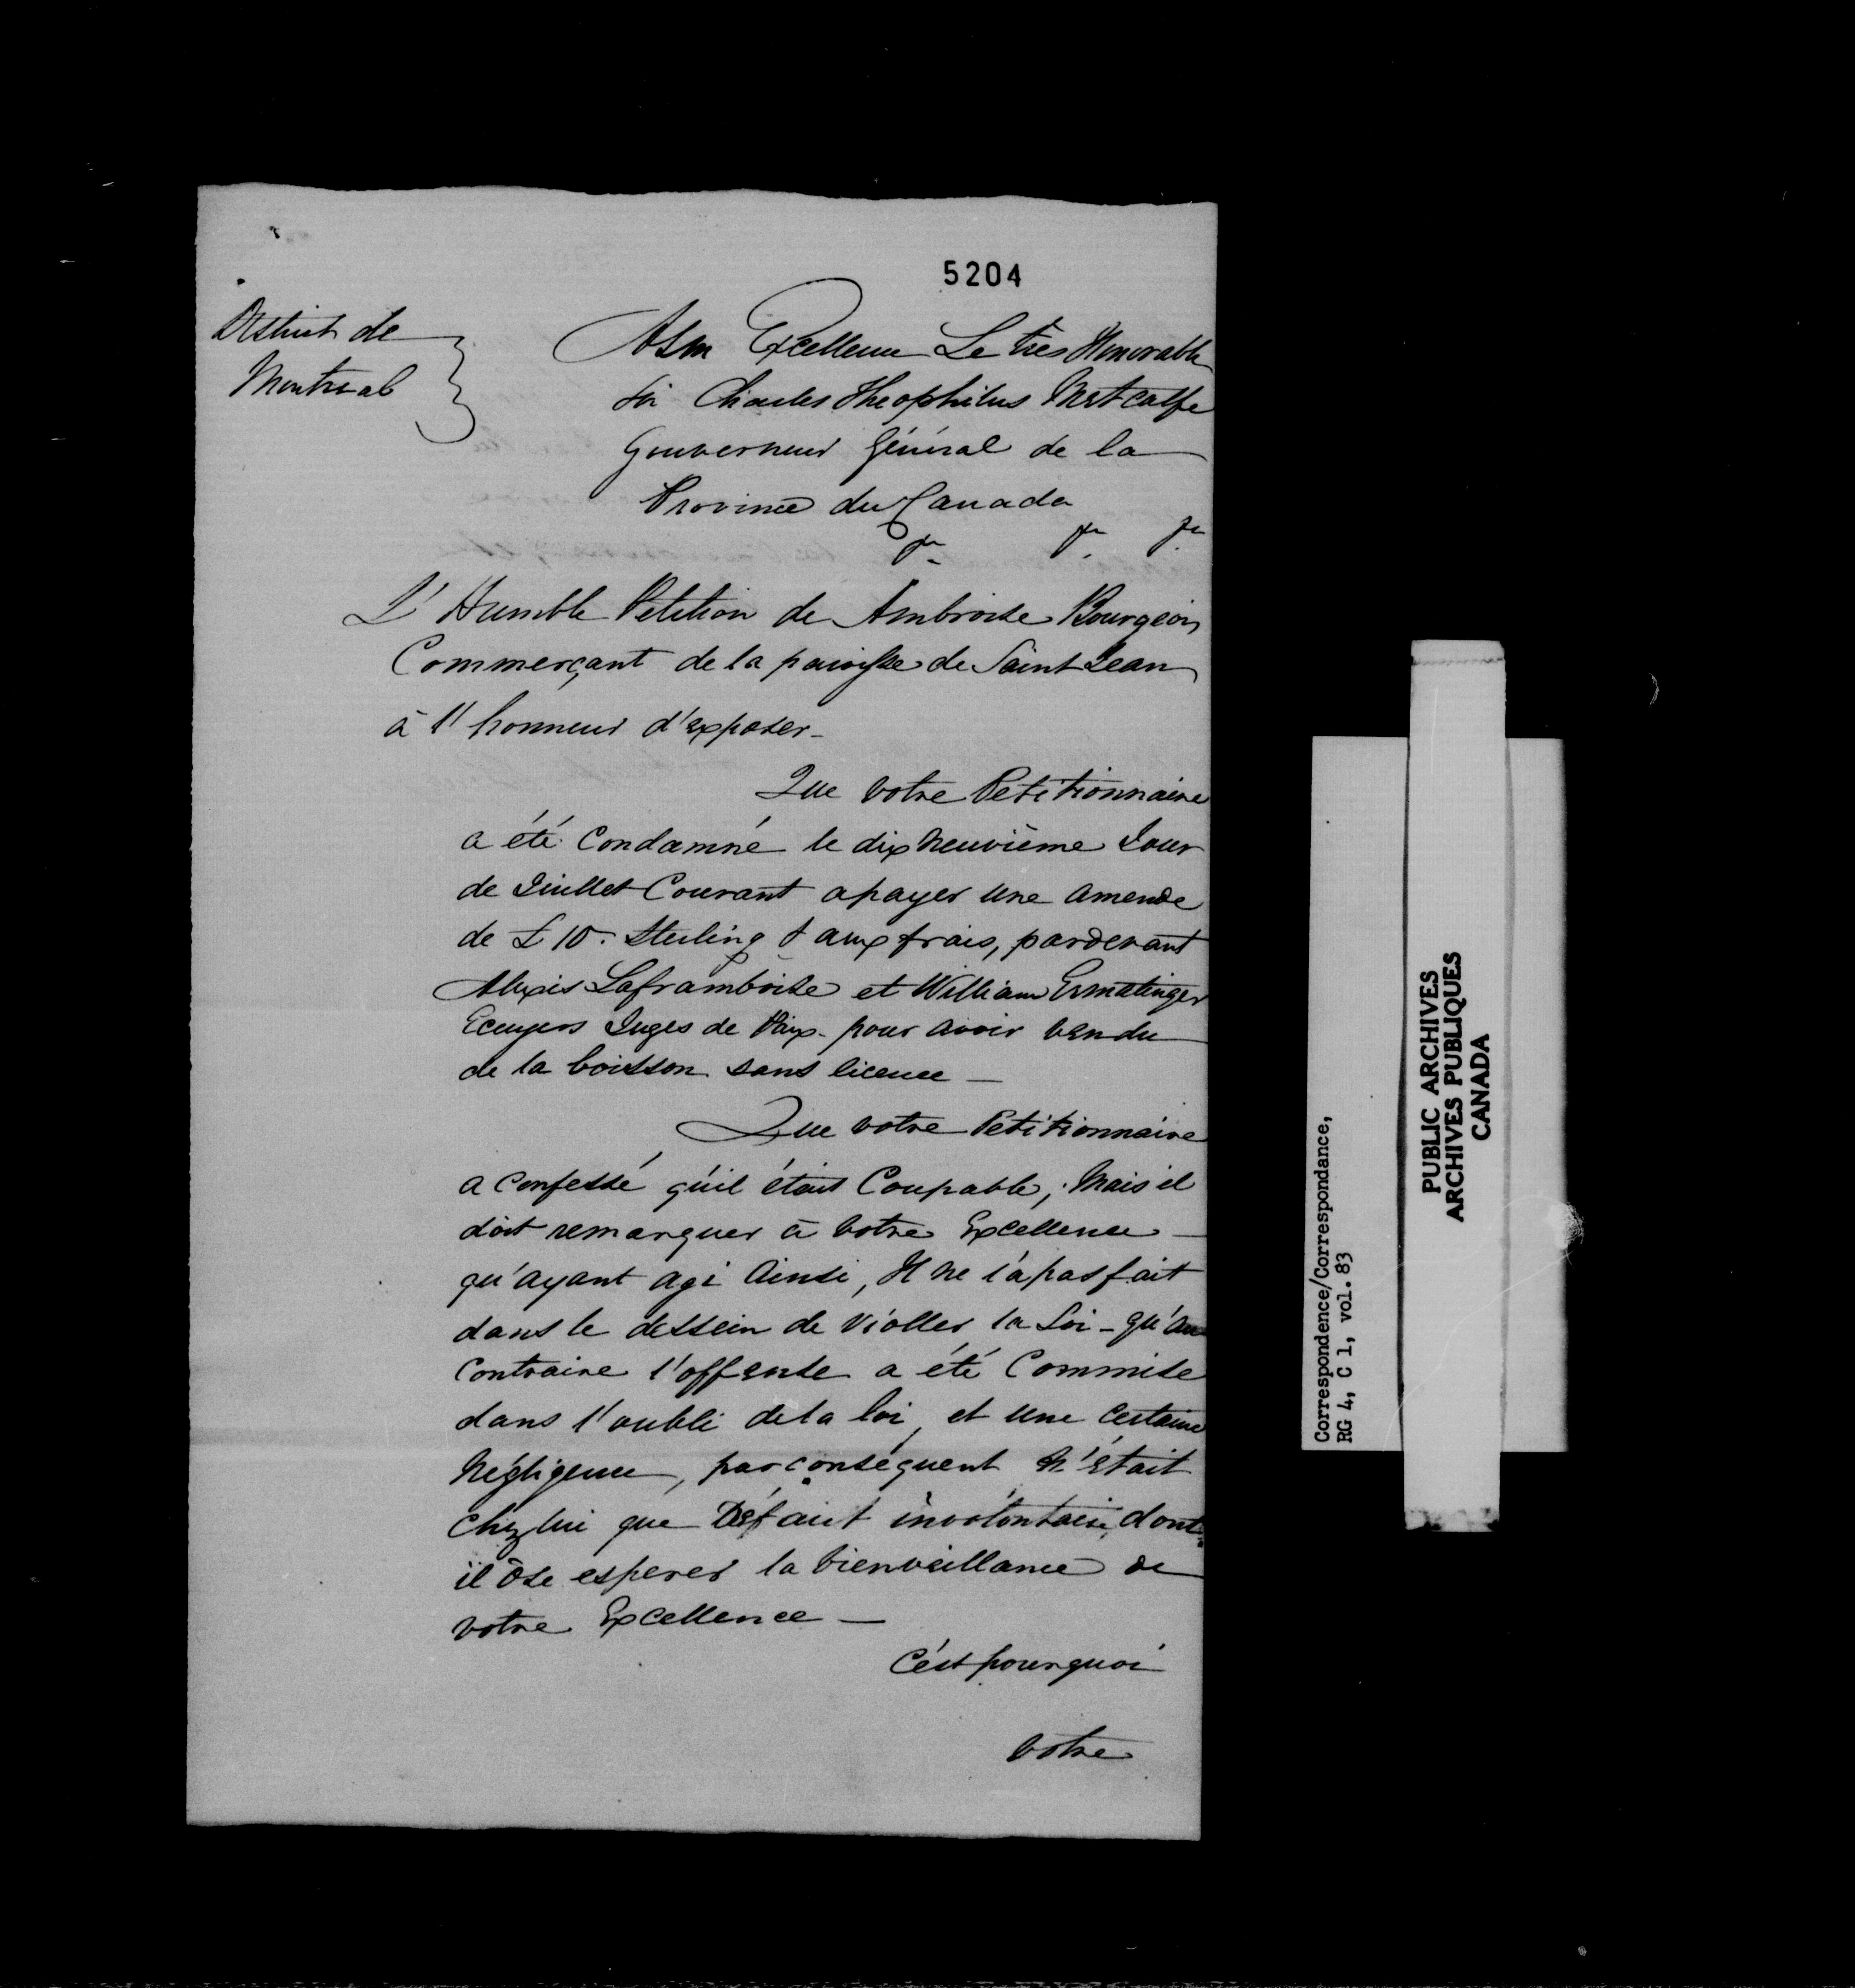 5204
District de
Montreal
A Son Excellence Le très Honorable
Sir Charles Theophilus Metcalfe
Gouverneur Général de la
Province du Canada
&c. &c. &c.
L'Humble Petition de Ambroise Bourgeois
Commerçant de la paroisse de Saint Jean
à l'honneur d'exposer_
Que votre Petitionnaire
a été Condamné le dix neuvième Jour
de Juillet Courant a payer une amende
de £10. Sterling & aux frais, pardevant
Alexis Laframboise et William Ermatinger
Ecuyers Juges de Paix_ pour avoir vendu
de la boisson sans licence _
Que votre Petitionnaire
a confessé qu'il était Coupable, Mais il
doit remarquer à votre Excellence _
qu'ayant agi Ainsi, Il ne l'a pas fait
dans le dessein de Violler la Loi _ qu'au
Contraire l'offense a été Commise
dans l'oubli de la loi, et une certaine
Négligence, par conséquent n'était
chez lui que Défaut involontaire, dont
il ôse esperer la bienveillance de
votre Excellence _
C'est pourquoi
votre
Correspondence/Correspondance,
RG 4, C 1, vol. 83
PUBLIC ARCHIVES
ARCHIVES PUBLIQUES
CANADA